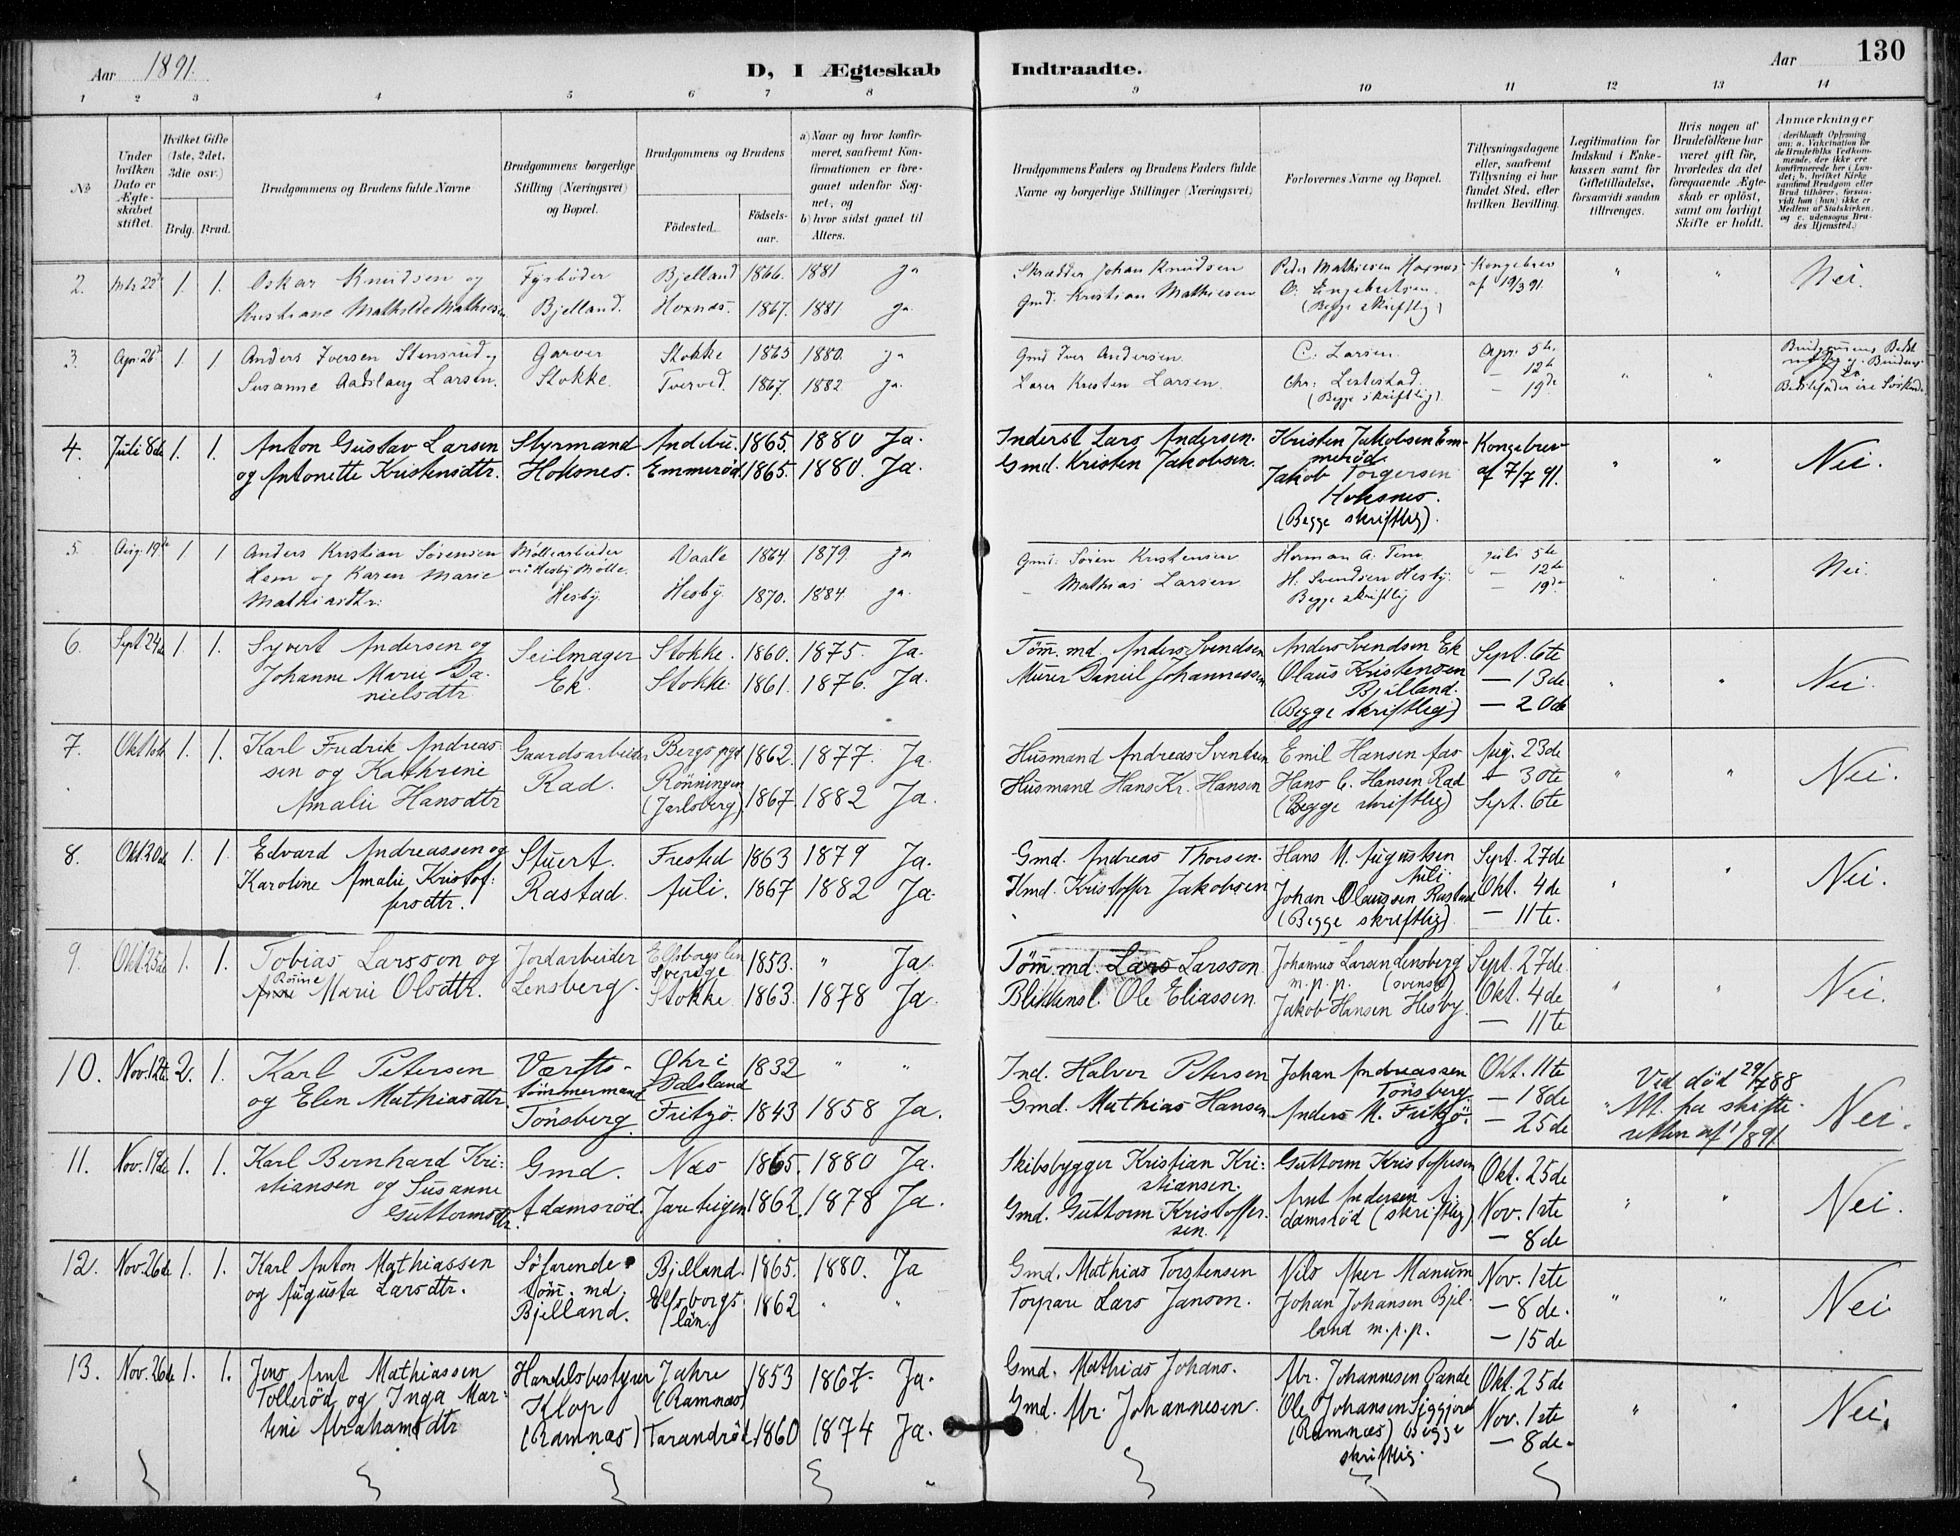 Aar 1891.
D, I Ægteskab Indtraadte.
Aar 130
1 2 3 4 5 6 7 8 9 10 11 12 13 14
No
Under hvilken Dato er Ægteskabet stiftet.
Hvilket Gifte (1ste, 2det, 3die osv.)
Brdg. Brud.
Brudgommens og Brudens fulde Navne
Brudgommens borgerlige Stilling (Næringsvei) og Bopæl.
Brudgommens og Brudens
Fødested.
Fødsels-aar.
a) Naar og hvor konfirmeret, saafremt Konfirmationen er foregaaet udenfor Sognet, og
b) hvor sidst gaaet til Alters.
Brudgommens Faders og Brudens Faders fulde Navne og borgerlige Stillinger (Næringsvei)
Forlovernes Navne og Bopæl.
Tillysningsdagene eller, saafremt Tillysning ei har fundet Sted, efter hvilken Bevilling.
Legitimation for Indskud i Enkekassen samt for Giftetilladelse, forsaavidt saadan tiltrænges.
Hvis nogen af Brudefolkene har været gift før, hvorledes da det foregaaende Ægteskab er opløst, samt om lovligt Skifte er holdt.
Anmærkninger
2. 1. 1. Oskar Knudsen og Fyrbøder Bjelland 1866. 1881 ja Skrædder Johan Knudsen Peder Mathiesen Hoxnes Kongebrev " " Nei.
Kristiane Mathilde Mathiesen Bjelland. Hoxnes. 1867. 1881 ja. Gmd. Kristian Mathiesen O. Engebretsen. af 19/3 91.
(Begge skriftlig)
3. Apr. 26de 1. 1 Anders Iversen Stensrud og Garver Stokke 1865 1880. ja Gmd Iver Andersen. C. Larsen. Apr. 5te
Susanne Aadslaug Larsen. Stokke. Tverved. 1867. 1882 ja. Lærer Kristen Larsen. Chr: Lestestad. — 12te " "
(Begge skriftlig). — 19de
4. Juli 8de 1. 1. Anton Gustav Larsen Styrmand Andebu. 1865. 1880 Ja. Inderst Lars Andersen. Kristen Jakobsen Em- Kongebrev
og Antonette Kristensdtr. Hoksnes. Emmerød 1865. 1880. Ja. Gmd. Kristen Jakobsen. merød. af 7/7 91. " " Nei.
Jakob Torgersen
Hoksnes.
(Begge skriftlig).
5. Aug. 19de 1. 1 Anders Kristian Sørensen Møllearbeider Vaale 1864 1879 ja Gmd. Søren Kristensen Herman A. Tem Juli 5te Nei
Hem og Karen Marie ved Hesby Mølle. — Mathias Larsen H. Svendsen Hesby. — 12te
Mathiasdtr. Hesby. Hesby. 1870. 1884 ja. Begge skriftlig — 19de
6. Sept. 24de 1. 1. Syvert Andersen og Seilmager Stokke. 1860. 1875. Ja. Tøm̄. md. Anders Svendsen Anders Svendsen Ek Sept. 6te
Johanne Marie Da- Ek. Stokke. 1861. 1876. Ja. Murer Daniel Johannessen Olaus Kristensen — 13de " " Nei.
nielsdtr Bjelland.
(Begge skriftlig) — 20de
7. 1. 1. Karl Fredrik Andreas- Gaardsarbeider Bergs pgd 1862. 1877. Ja. Husmand Andreas Svendsen Emil Hansen Aas Aug. 23de
sen og Kathrine Rad. Rønningen Husmand Hans Kr. Hansen Hans C. Hansen Rad — 30te " " Nei.
Amalie Hansdtr (Jarlsberg) 1867. 1882 Ja. (Begge skriftlig) Sept. 6te
8. Okt. 20de 1. 1. Edvard Andreassen og Stuert. Frested 1863 1879 Ja. Gmd. Andreas Thorsen. Hans M. Augustsen Sept. 27de
Karoline Amalie Kristof- Rastad. Auli. 1867 1882 Ja. Hmd. Kristoffer Jakobsen Auli. Okt. 4de " " Nei.
fersdtr. Johan Olaussen Rastad
(Begge skriftlig). — 11te.
9. Okt. 25de 1. 1. Tobias Larsson og Jordarbeider Elfsborgs län Sverige 1853. " Ja Tøm̄. md. Lars Larsson. Johannes Larsen Lensberg Sept. 27de.
Marie Olsdtr. Lensberg. Stokke 1863. 1878 Ja. Blikkensl. Ole Eliassen m.p.p. (svensk) Okt. 4de " " Nei.
Jakob Hansen Hesby. — 11te
10. Nov. 12te 2. 1. Karl Petersen Værfts- Økr i 1832 " " Ind. Halvor Petersen Johan Andreassen Okt. 11te Ved død 29/7 88
og Elen Mathiasdtr. tømmermand Dalsland Tønsberg. — 18de Att. fra skifte-
Tønsberg. Fritzø. 1843 1858 Ja. Gmd. Mathias Hansen Anders M. Fritzø. — 25de retten af 1/8 91. Nei.
11. Nov. 19de 1. 1. Karl Bernhard Kri- Gmd. Næs 1865. 1880 Ja. Skibsbygger Kristian Kri- Guttorm Kristoffersen Okt. 25de
stiansen og Susanne stiansen. Arnt Andersen A-
Guttormsdtr. Adamsrød. Jareteigen 1862. 1878 Ja. Gmd. Guttorm Kristoffer- damsrød (skriftlig). Nov. 1ste " " Nei.
sen. — 8de
12. Nov. 26de 1. 1. Karl Anton Mathiassen Søfarende Bjelland. 1865. 1880. Ja Gmd. Mathias Torstensen Nils Aker Manum Nov. 1ste
og Augusta Larsdtr. tøm̄. md. Elfsborgs 1862 " " Torpare Lars Janson. Johan Johansen Bjel- — 8de. " " Nei
Bjelland. län. land m.p.p. — 15de
13. Nov. 26de 1. 1. Jens Arnt Mathiassen Handelsbestyrer Jahre 1853 1867. Ja. Gmd. Mathias Johans. Abr. Johannesen Gande Okt. 25de
Tollerød og Inga Mar- Klop (Ramnæs) Gmd. Abr. Johannesen. Ole Johansen Nov. 1ste " " Nei.
tine Abrahamsdtr (Ramnæs) Tarandrød. 1860 1874 Ja. (Ramnæs) Begge — 8de.
skriftlig.